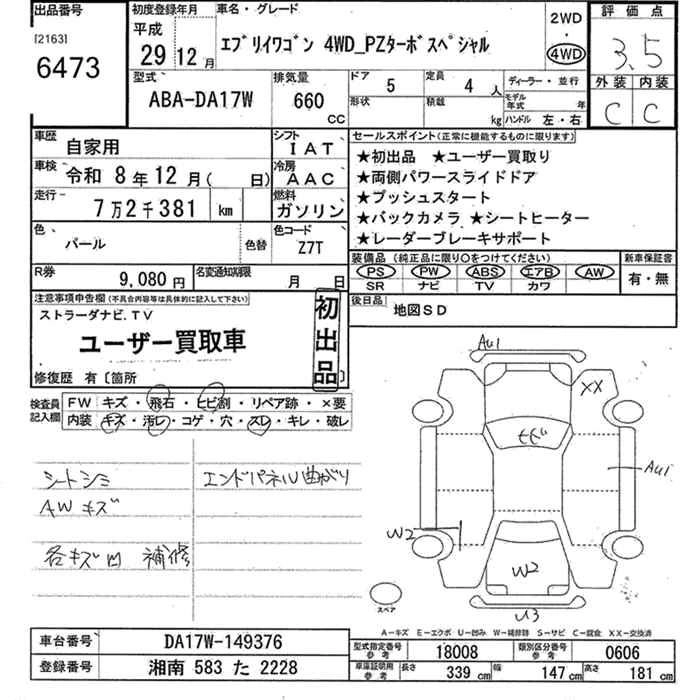 出品番号 初度登録年月 車名・グレード 評価点
[2163] 平成 2WD
6473 29 12月 エブリイワゴン 4WD_PZターボスペシャル 4WD 3.5
型式 排気量 ドア 5 定員 4人 ディーラー・並行 外装 内装
ABA-DA17W 660 CC 形状 積載 kg モデル年式 年 C C
ハンドル 左・右
車歴 自家用 シフト IAT セールスポイント(正常に機能するものに限ります)
車検 令和 8年 12月( 日) 冷房 AAC ★初出品 ★ユーザー買取り
★両側パワースライドドア
走行 7万2千381 km 燃料 ガソリン ★プッシュスタート
★バックカメラ ★シートヒーター
色 パール 色替 色コード Z7T ★レーダーブレーキサポート
装備品 (純正品に限り○をつけてください) 新車保証書
R券 9,080円 名変通知期限 月 日 PS PW ABS エアB AW 有・無
SR ナビ TV カワ
注意事項申告欄(不具合内容等は具体的に記入して下さい) 初出品 後日品 地図SD
ストラーダナビ.TV
ユーザー買取車
修復歴 有〔箇所 〕
検査員記入欄 FW キズ・飛石・ヒビ割・リペア跡・×要
内装 キズ・汚レ・コゲ・穴・スレ・キレ・破レ
シートシミ エンドパネル曲がり
AWキズ
各キズ凹 補修
AU1
XX
AU1
W2
W2
U3
スペア
A-キズ E-エクボ U-凹み W-補修跡 S-サビ C-腐食 XX-交換済
車台番号 DA17W-149376 型式指定番号 参考 18008 類別区分番号 参考 0606
登録番号 湘南 583 た 2228 車庫証明用 参考 長さ 339 cm 幅 147 cm 高さ 181 cm